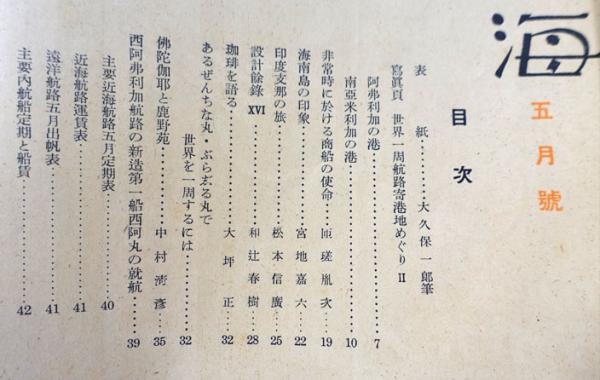 海
五月號
目次
表紙……大久保一郎筆
寫眞頁 世界一周航路寄港地めぐりⅡ
阿弗利加の港……7
南亞米利加の港……10
非常時に於ける商船の使命……匝瑳胤次……19
海南島の印象……宮地嘉六……22
印度支那の旅……松本信廣……25
設計餘錄 XVI……和辻春樹……28
珈琲を語る……大坪正……32
あるぜんちな丸・ぶらじる丸で
世界を一周するには……32
佛陀伽耶と鹿野苑……中村淸彥……35
西阿弗利加航路の新造第一船西阿丸の就航……39
主要近海航路五月定期表……40
近海航路運賃表……41
遠洋航路五月出帆表……41
主要內航船定期と船賃……42